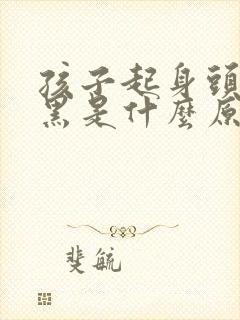 孩子起身頭
黑是什麼原
斐毓